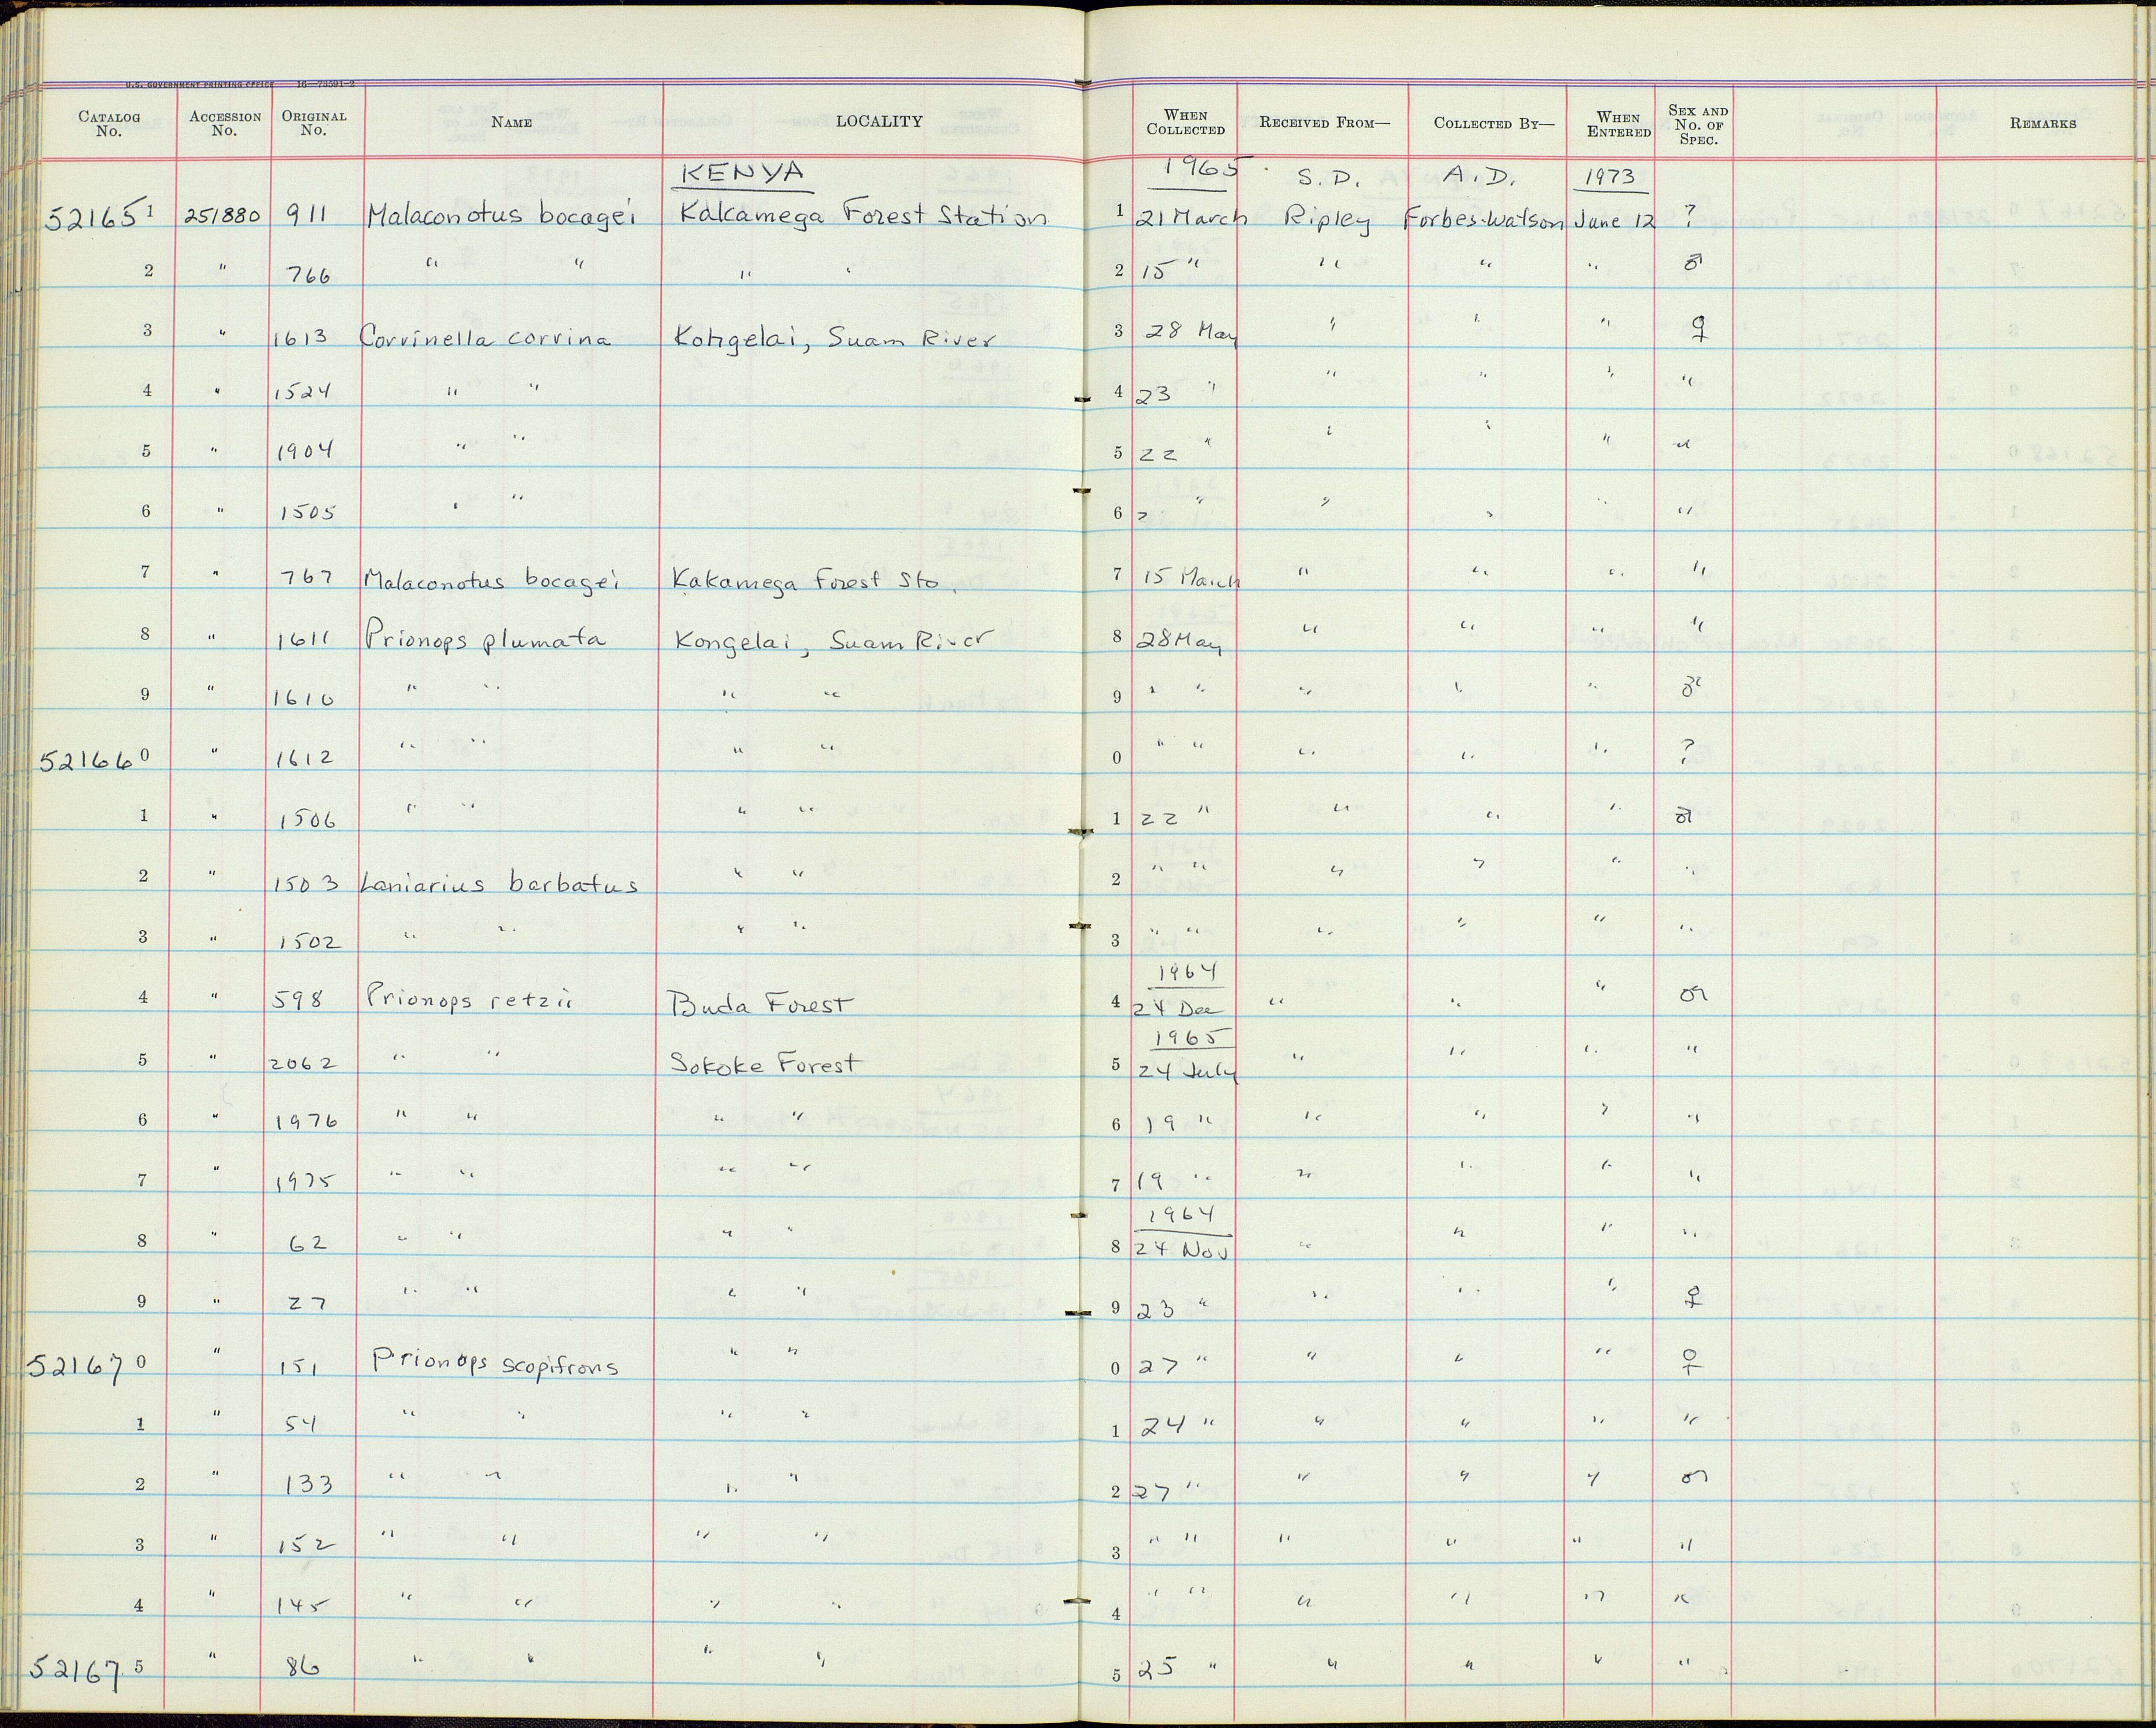 U.S. GOVERNMENT PRINTING OFFICE 16—73591-2
CATALOG No. ACCESSION No. ORIGINAL No. NAME LOCALITY WHEN COLLECTED RECEIVED FROM— COLLECTED BY— WHEN ENTERED SEX AND No. OF SPEC. REMARKS
KENYA 1965 S.D. A.D. 1973
521651 251880 911 Malaconotus bocagei Kakamega Forest Station 1 21 March Ripley Forbes-Watson June 12 ?
2 " 766 " " " " 2 15 " " " " ♂
3 " 1613 Corvinella corvina Kongelai, Suam River 3 28 May " " " ♀
4 " 1524 " " 4 23 " " " " "
5 " 1904 " " 5 22 " " " " "
6 " 1505 " " 6 " " " " " "
7 " 767 Malaconotus bocagei Kakamega Forest Sta. 7 15 March " " " "
8 " 1611 Prionops plumata Kongelai, Suam River 8 28 May " " " "
9 " 1610 " " " " 9 " " " " " ♂
521660 " 1612 " " " " 0 " " " " " ?
1 " 1506 " " " " 1 22 " " " " ♂
2 " 1503 Laniarius barbatus " " 2 " " " " " "
3 " 1502 " " " " 3 " " " " " "
1964
4 " 598 Prionops retzii Buda Forest 4 24 Dec " " " ♂
1965
5 " 2062 " " Sokoke Forest 5 24 July " " " "
6 " 1976 " " " " 6 19 " " " " "
7 " 1975 " " " " 7 19 " " " " "
1964
8 " 62 " " " " 8 24 Nov " " " "
9 " 27 " " " " 9 23 " " " " ♀
521670 " 151 Prionops scopifrons " " 0 27 " " " " ♀
1 " 54 " " " " 1 24 " " " " "
2 " 133 " " " " 2 27 " " " " ♂
3 " 152 " " " " 3 " " " " " "
4 " 145 " " " " 4 " " " " " "
521675 " 86 " " " " 5 25 " " " " "